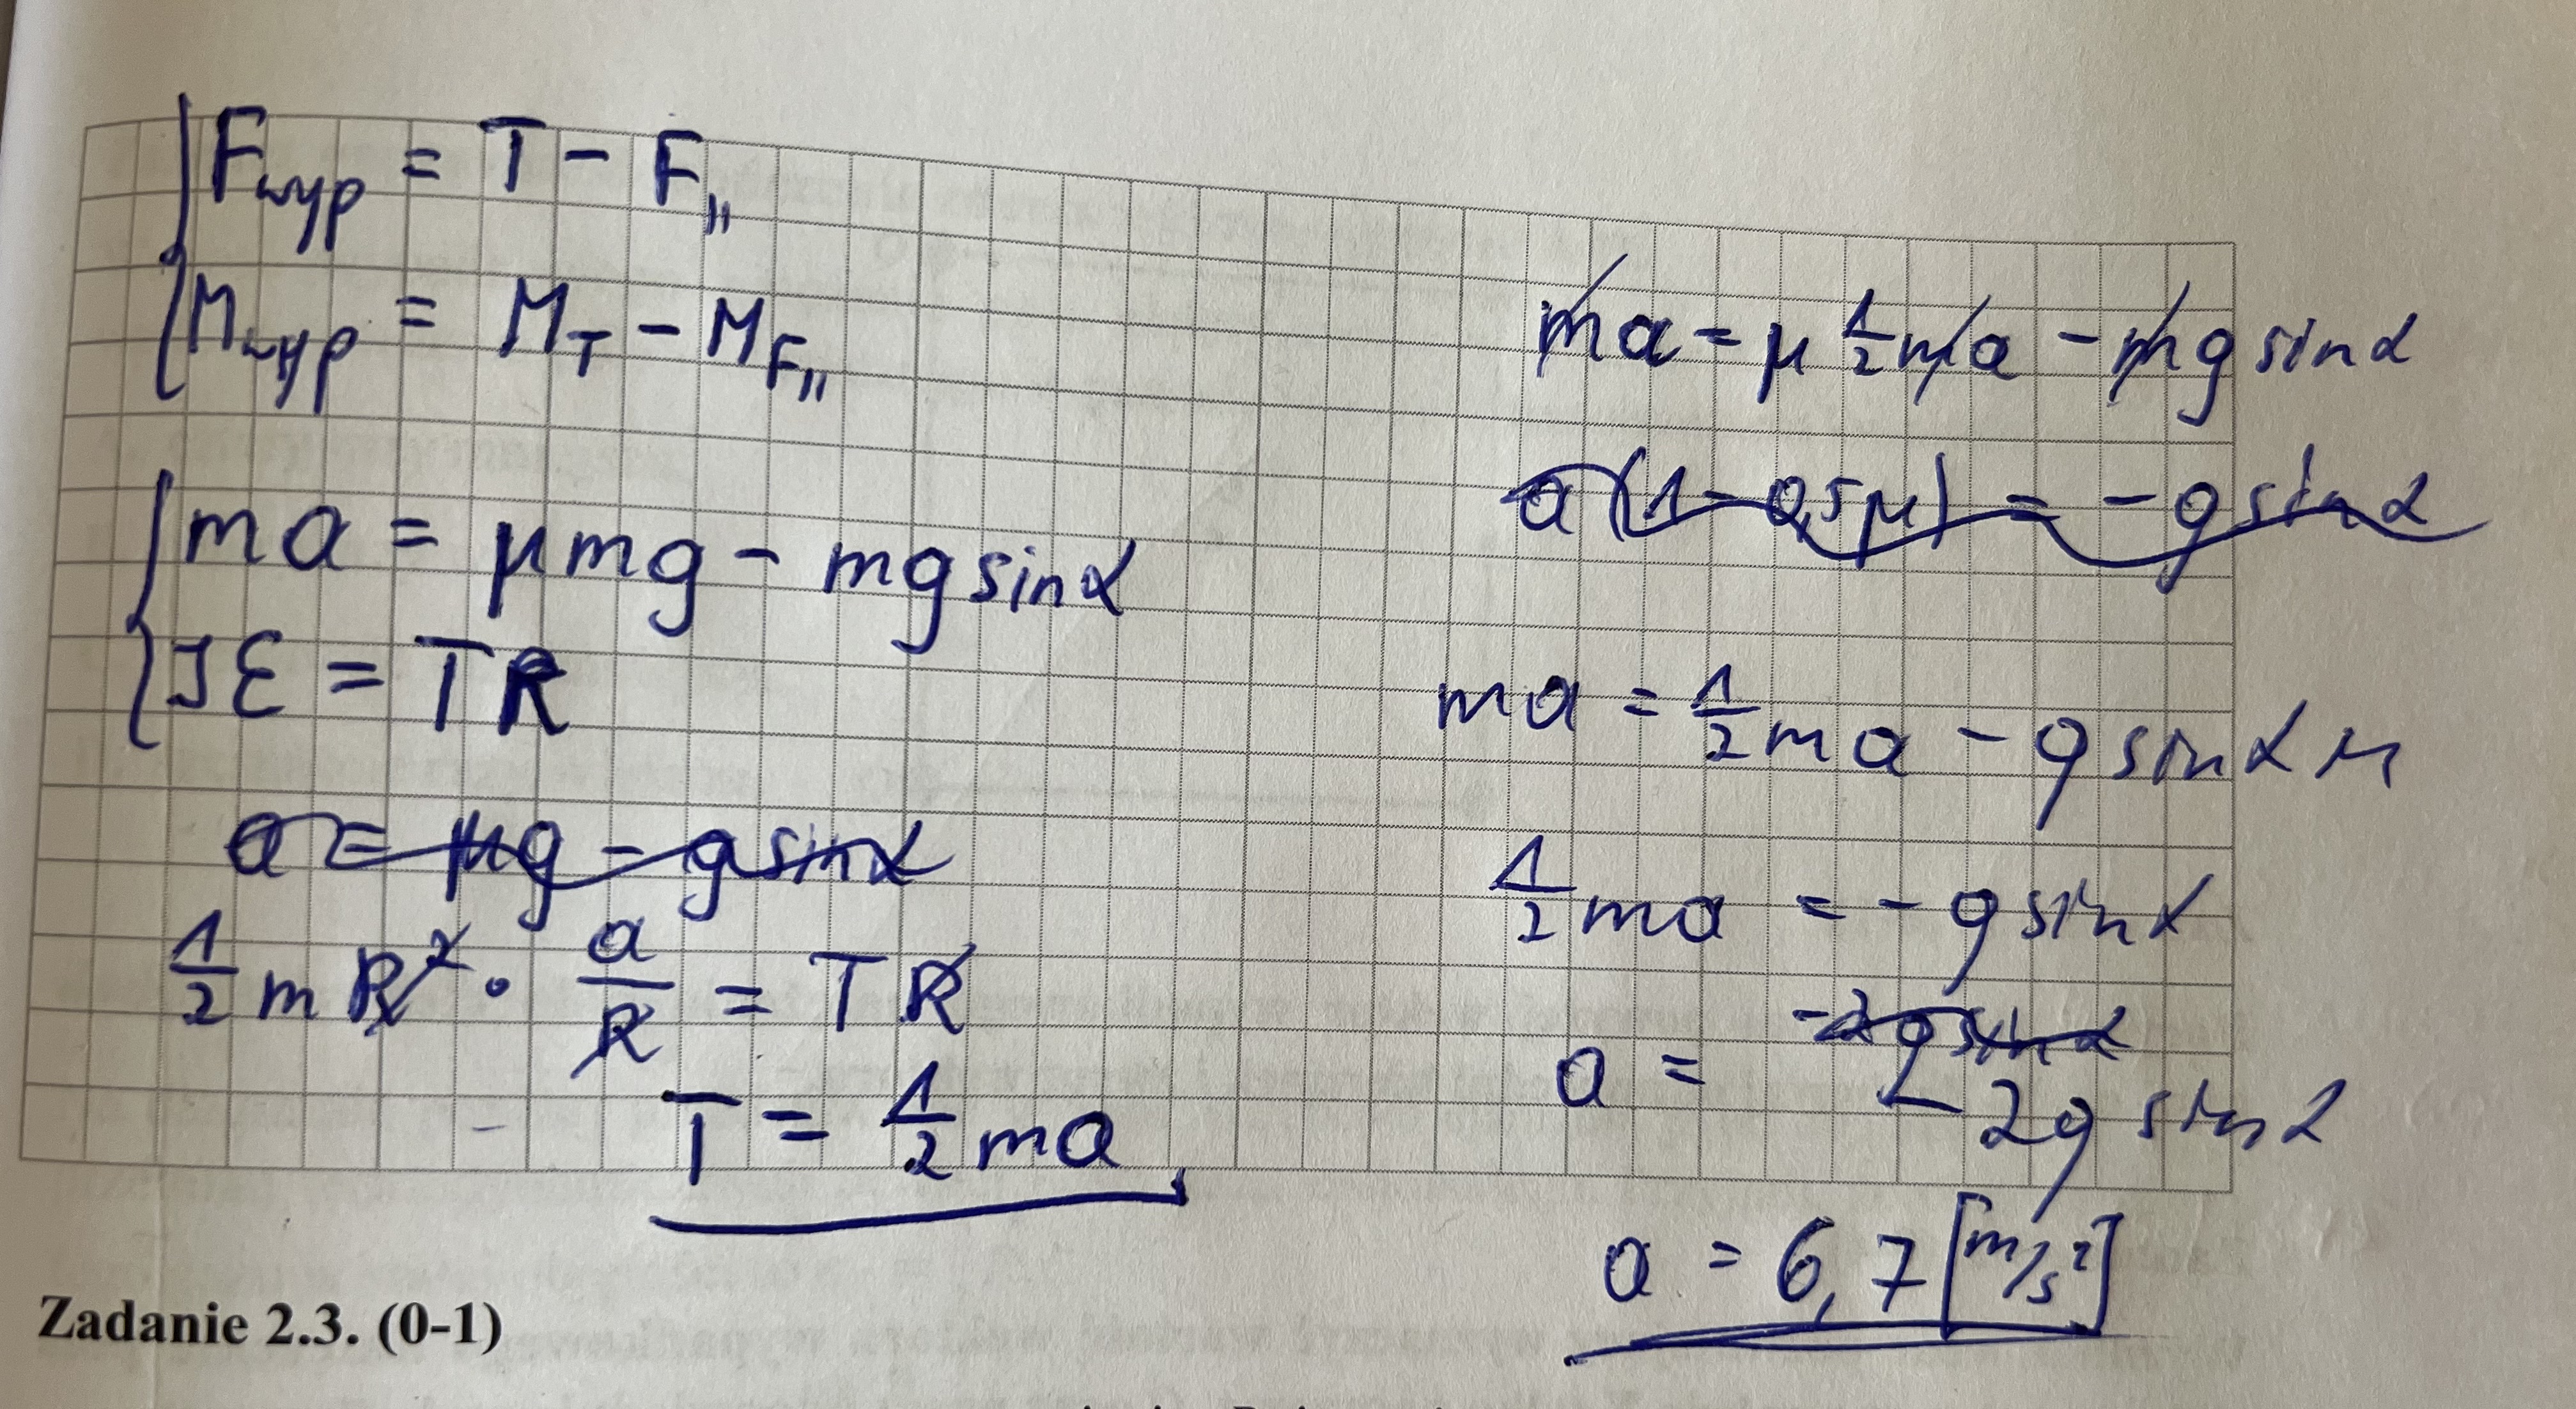 F_wyp = T - F_||
M_wyp = M_T - M_F||
ma = μmg - mg sinα
Iε = TR
a = μg - g sinα
1/2 mR² · a/R = TR
T = 1/2 ma
ma = μ 1/2 ma - mg sinα
a(1 - 0,5μ) = -g sinα
ma = 1/2 ma - g sinα m
1/2 ma = - g sinα
a = -2g sinα
2g sinα
a = 6,7 [m/s²]
Zadanie 2.3. (0-1)